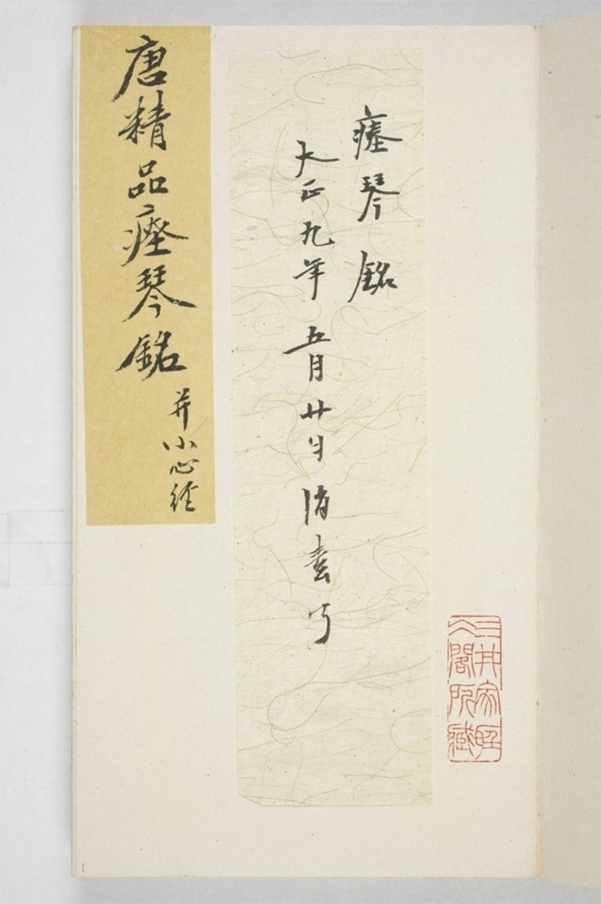 三井家聽
冰閣所藏
瘞琴銘
大正九年五月廿日
唐精品瘞琴銘
并小心経